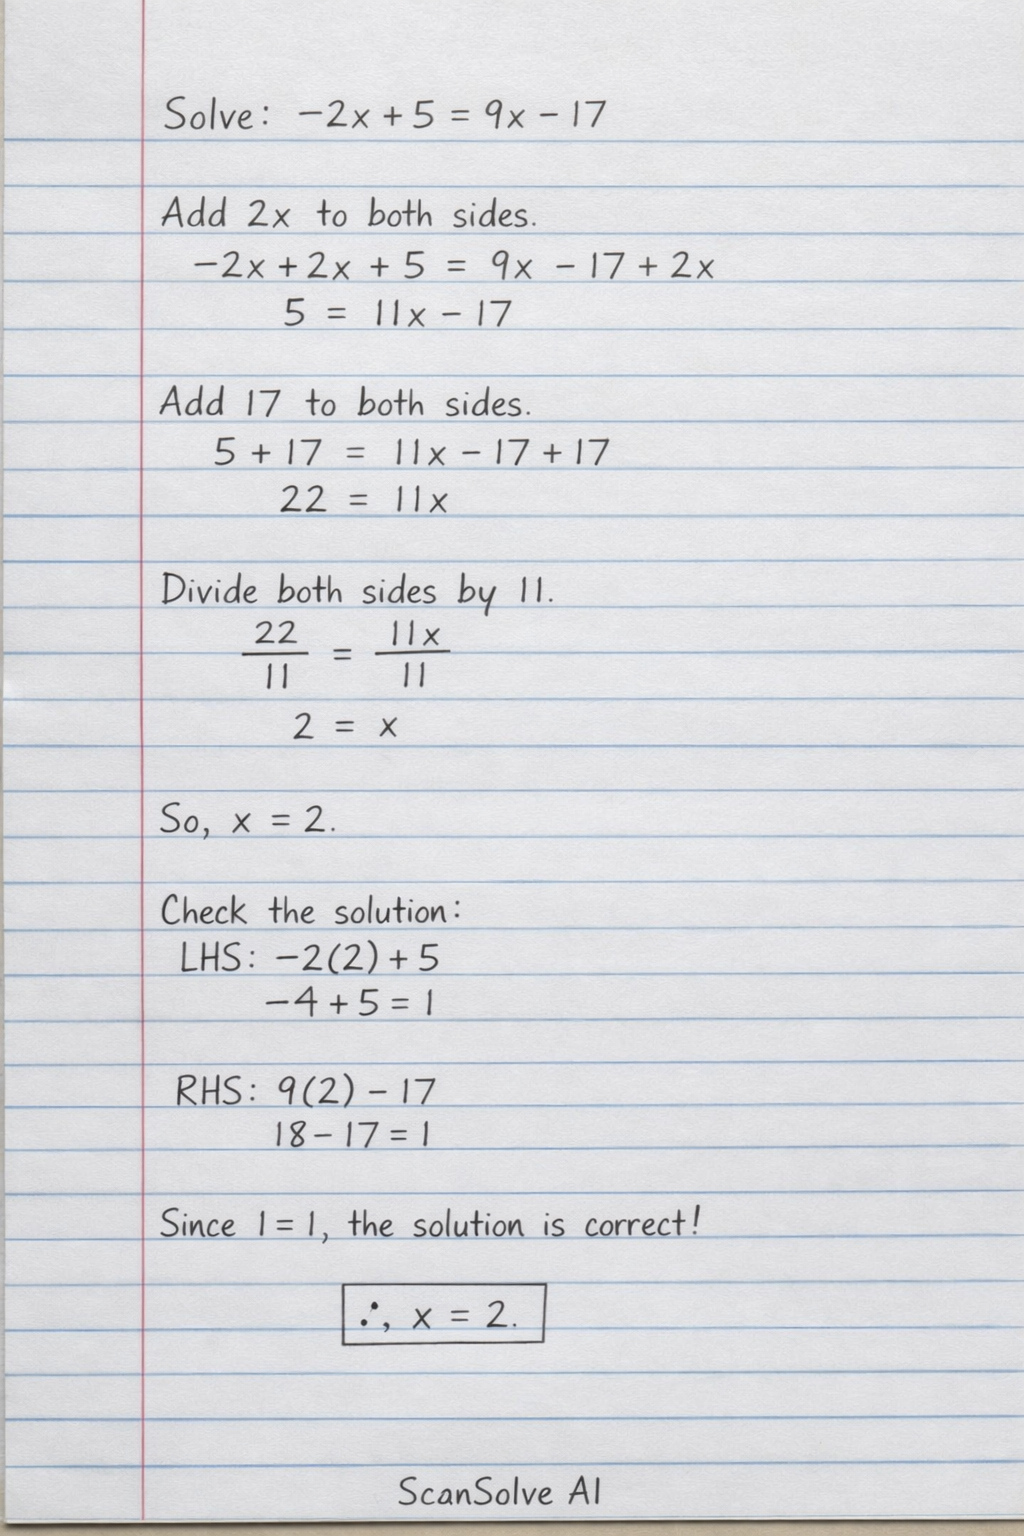 Solve: −2x + 5 = 9x − 17
Add 2x to both sides.
−2x + 2x + 5 = 9x − 17 + 2x
5 = 11x − 17
Add 17 to both sides.
5 + 17 = 11x − 17 + 17
22 = 11x
Divide both sides by 11.
22/11 = 11x/11
2 = x
So, x = 2.
Check the solution:
LHS: −2(2) + 5
−4 + 5 = 1
RHS: 9(2) − 17
18 − 17 = 1
Since 1 = 1, the solution is correct!
∴, x = 2.
ScanSolve AI